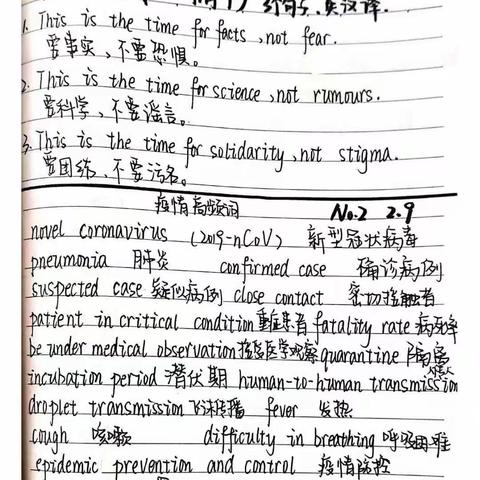 句子英汉译.
1. This is the time for facts, not fear.
要事实,不要恐惧。
2. This is the time for science, not rumours.
要科学,不要谣言。
3. This is the time for solidarity, not stigma.
要团结,不要污名。
疫情高频词 No.2 2.9
novel coronavirus (2019-nCoV) 新型冠状病毒
pneumonia 肺炎 confirmed case 确诊病例
suspected case 疑似病例 close contact 密切接触者
patient in critical condition 重症患者 fatality rate 病死率
be under medical observation 接受医学观察 quarantine 隔离
incubation period 潜伏期 human-to-human transmission 人传人
droplet transmission 飞沫传播 fever 发热
cough 咳嗽 difficulty in breathing 呼吸困难
epidemic prevention and control 疫情防控